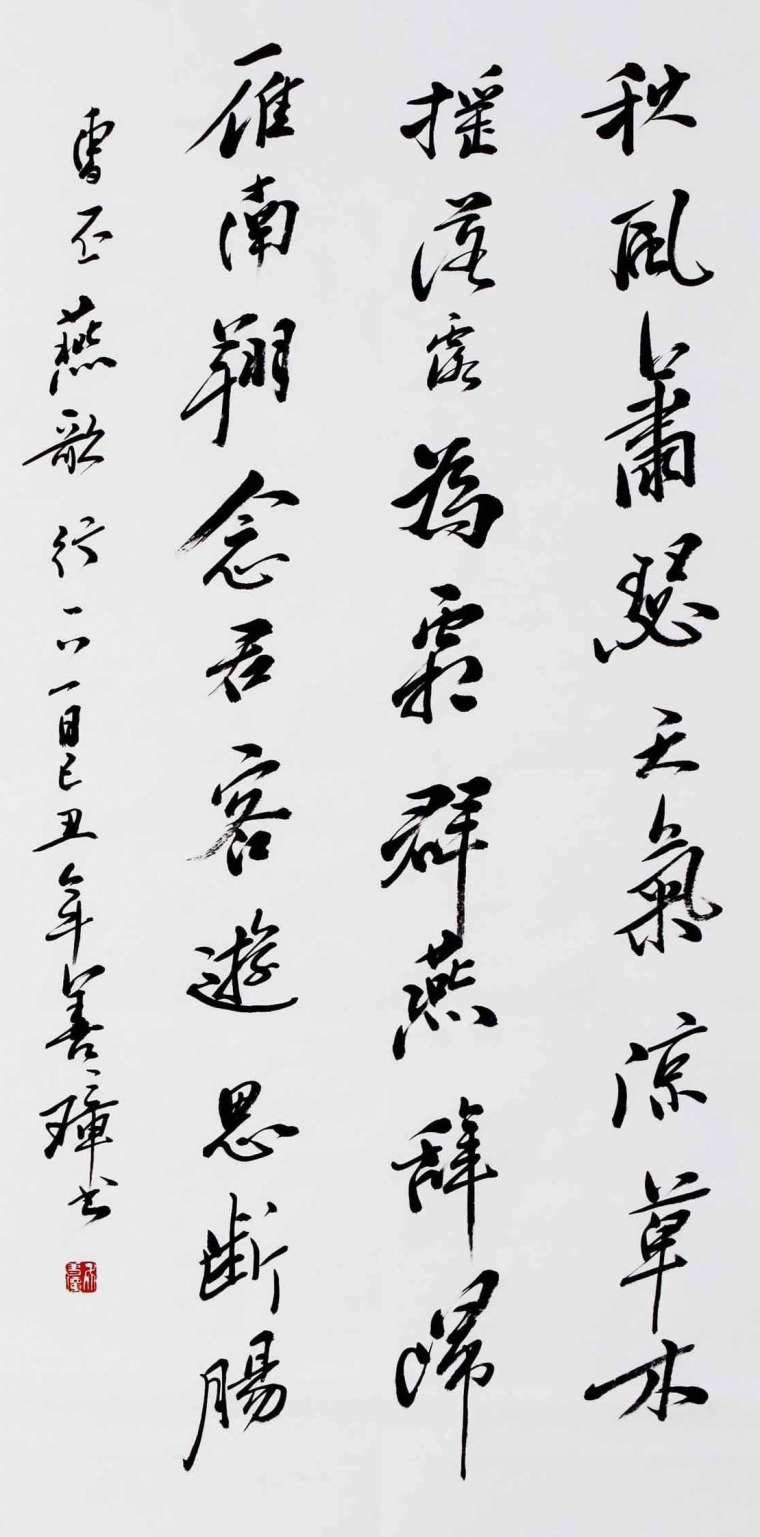 秋風蕭瑟天氣涼草木
搖落露為霜群燕辭歸
雁南翔念君客遊思斷腸
曹丕燕歌行己丑年善璋书